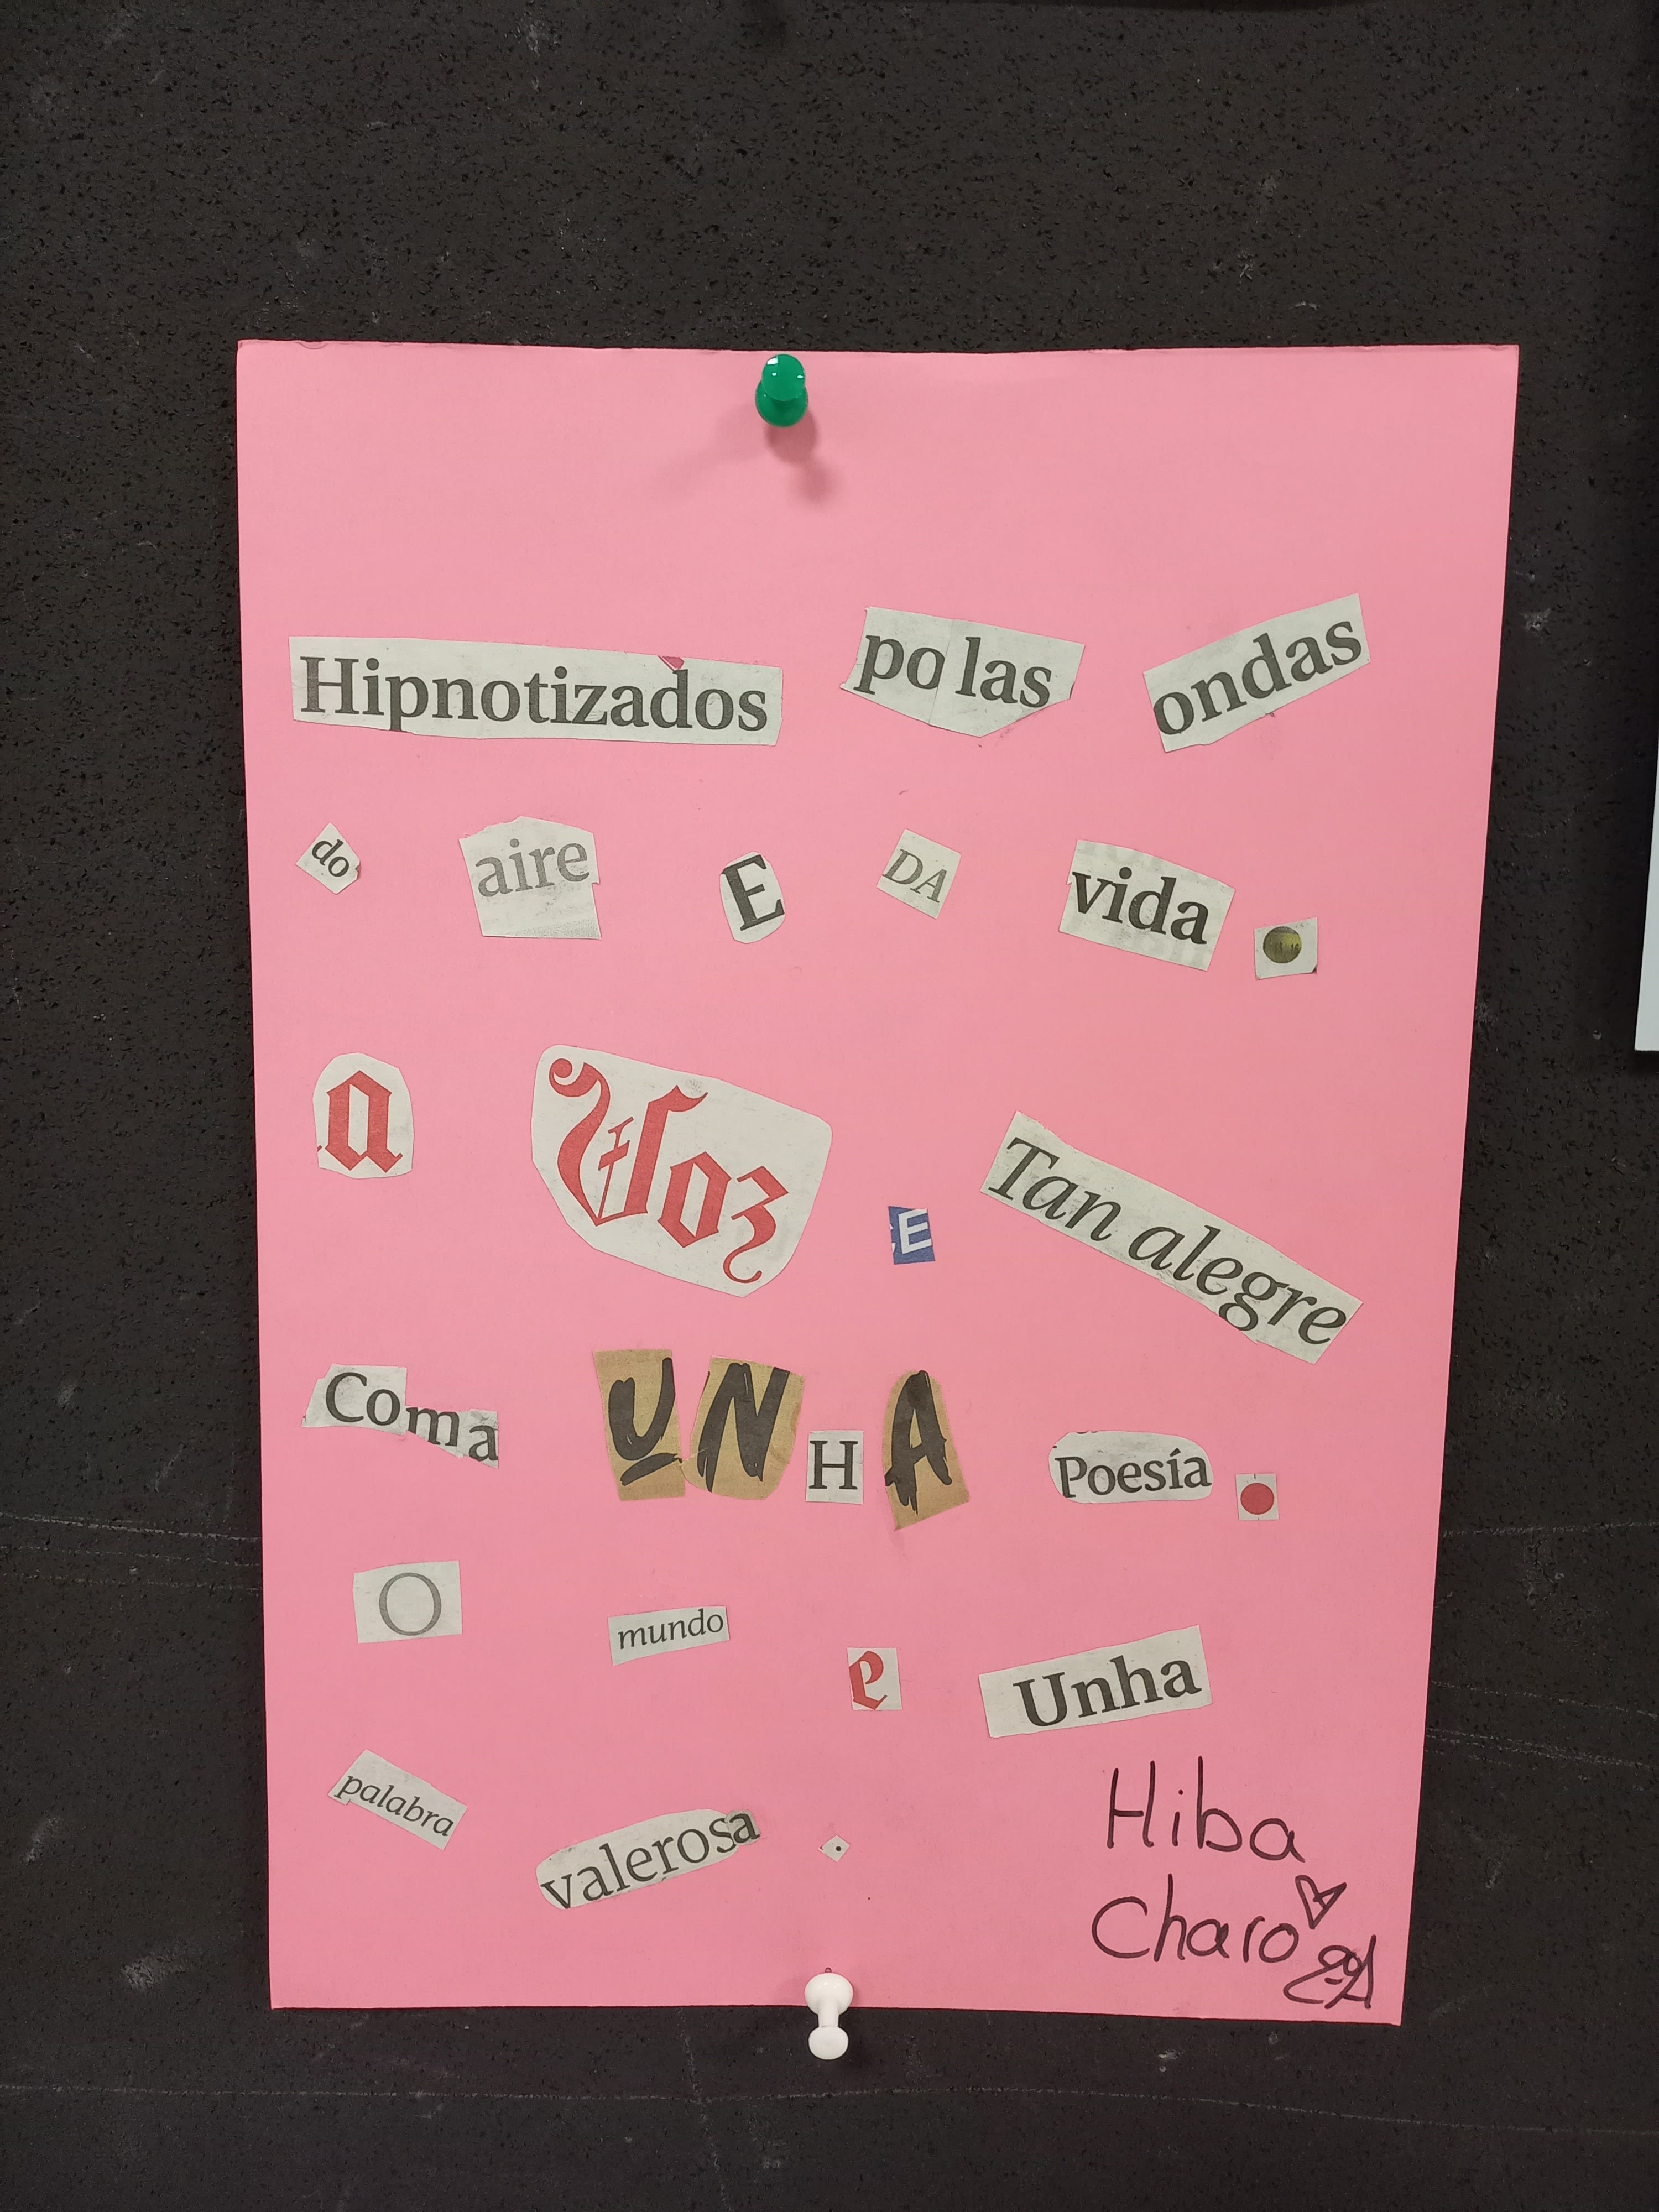 Hipnotizados polas ondas
do aire E DA vida.
a Voz E Tan alegre
Coma UNHA Poesía.
O mundo e Unha
palabra valerosa.
Hiba
Charo